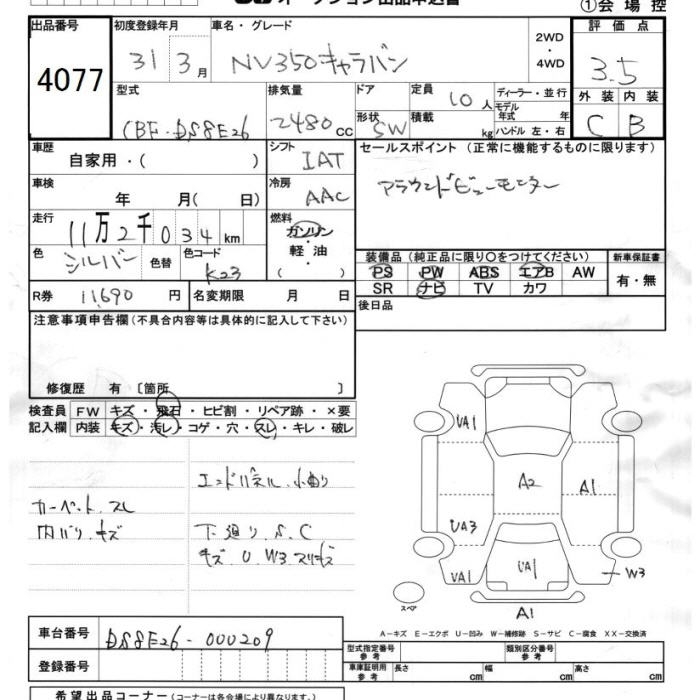 ①会場控
出品番号
4077
初度登録年月
31 3月
車名・グレード
NV350キャラバン
2WD
・
4WD
評価点
3.5
外装 内装
C B
型式
CBF-DS8E26
排気量
2480 CC
ドア
形状
SW
定員
10人
積載
kg
ディーラー・並行
モデル
年式 年
ハンドル 左・右
車歴
自家用・( )
シフト
IAT
セールスポイント(正常に機能するものに限ります)
アラウンドビューモニター
車検
年 月(日)
冷房
AAC
走行
11万2千034km
燃料
ガソリン
軽・油
・( )
色
シルバー
色替
色コード
K23
装備品(純正品に限り〇をつけてください)
PS PW ABS エアB AW
SR ナビ TV カワ
新車保証書
有・無
R券 11,690 円
名変期限 月 日
後日品
注意事項申告欄(不具合内容等は具体的に記入して下さい)
修復歴 有〔箇所 〕
検査員 FW キズ・飛石・ヒビ割・リペア跡・×要
記入欄 内装 キズ・汚レ・コゲ・穴・スレ・キレ・破レ
エンドパネル.小曲り
カーペット.スレ
内バリ.キズ
下廻り.S.C
キズ.U.W3
UA1
A2
A1
UA3
UA1
UA1
W3
スペア
A1
A−キズ E−エクボ U−凹み W−補修跡 S−サビ C−腐食 XX−交換済
車台番号 DS8E26-000209
登録番号
型式指定番号
参考
類別区分番号
参考
車庫証明用
参考
長さ cm 幅 cm 高さ cm
希望出品コーナー(コーナーは各会場により異なります。)